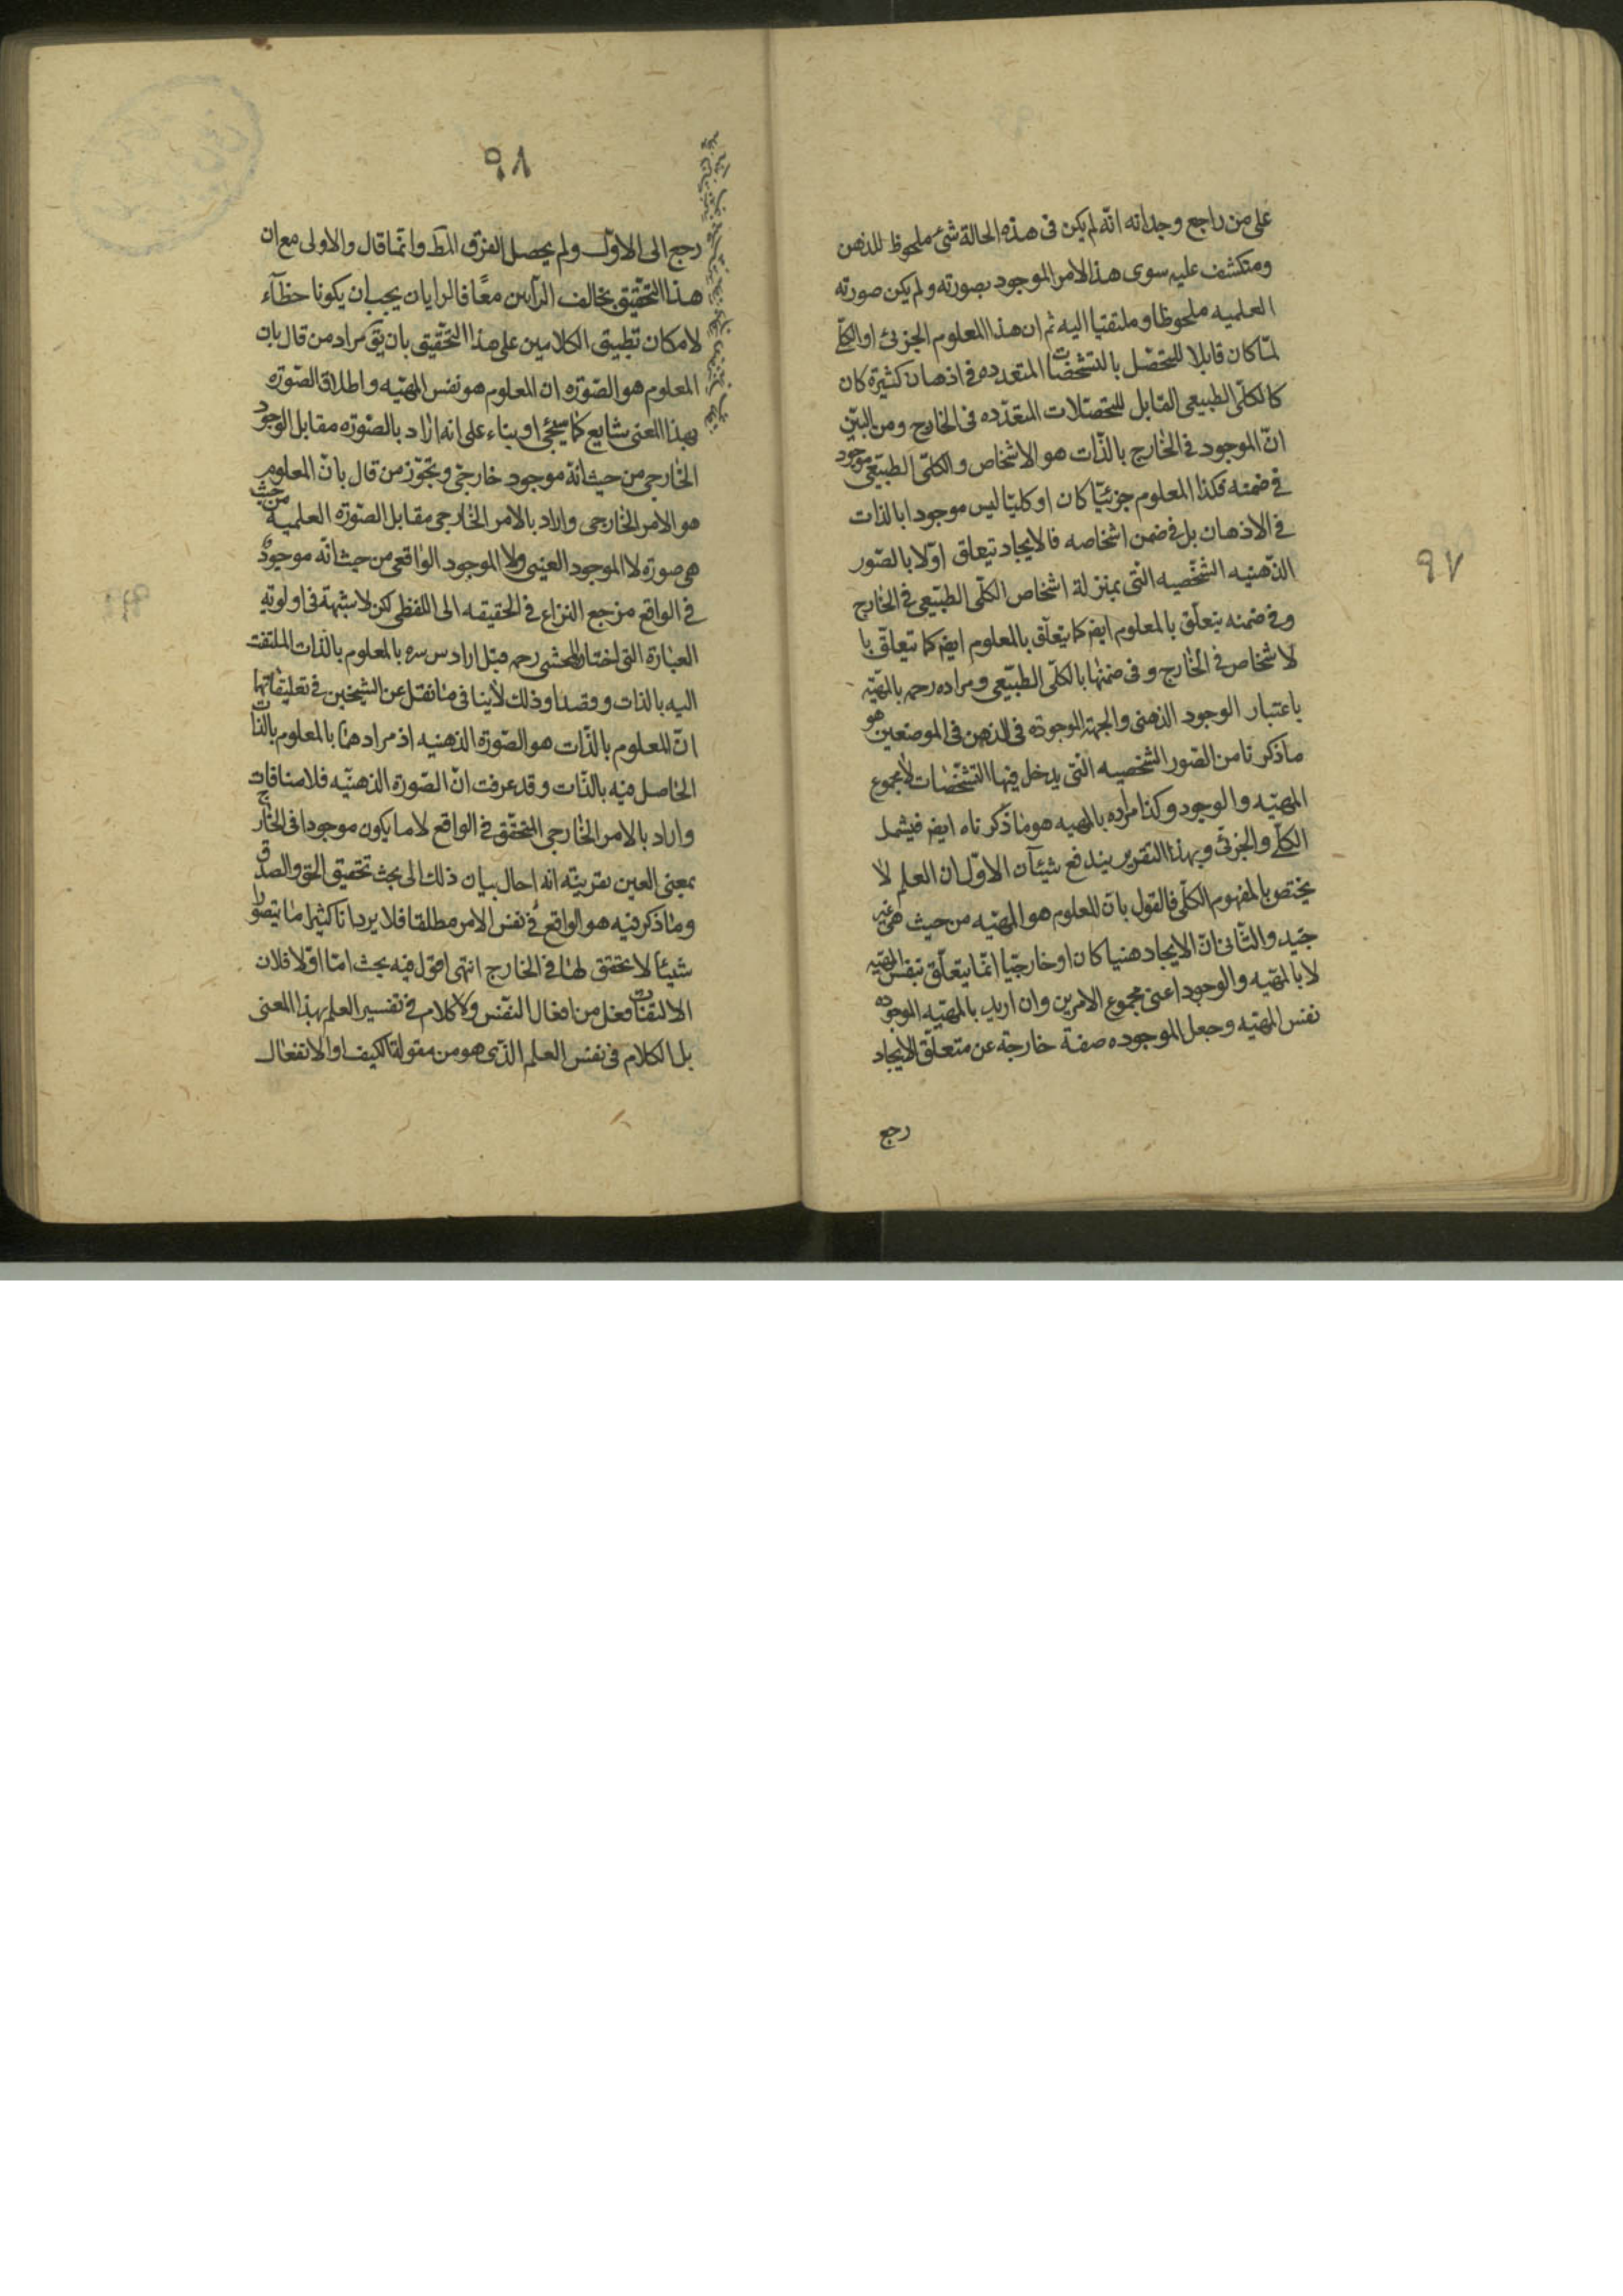 ٩٧
على من راجع وجدانه انّه لم يكن فى هذه الحالة شئ ملحوظ للذهن
ومنكشف عليه سوى هذا الامر الموجود بصورته ولم يكن صورته
العلميه ملحوظا وملتفتا اليه ثم ان هذا المعلوم الجزئى او الكلّى
لمّا كان قابلا للتحصّل بالتشخّصات المتعدده فى اذهان كثيرة كان
كالكلّى الطبيعى القابل للتحصّلات المتعدّده فى الخارج ومن البيّن
انّ الموجود فى الخارج بالذّات هو الاشخاص والكلّى الطبيّعى موجود
فى ضمنه فكذا المعلوم جزئيّا كان او كليّا ليس موجودا بالذات
فى الاذهان بل فى ضمن اشخاصه فالايجاد يتعلق اوّلا بالصّور
الذّهنيه الشخّصيه الّتى بمنزلة اشخاص الكلّى الطبيّعى فى الخارج
وفى ضمنه يتعلّق بالمعلوم ايضا كما يتعلّق بالمعلوم ايضا كما يتعلّق با
لاشخاص فى الخارج وفى ضمنها بالكلّى الطبيّعى ومراده رحمه بالمهيّه
باعتبار الوجود الذهنى والجهة الموجوده فى الذهن فى الموضعين هو
ما ذكرنا من الصّور الشخصيه الّتى يدخل فيها التشخّصات لا مجموع
المهيّه والوجود وكذا مراده بالمهيه هو ما ذكرناه ايضا فيشمل
الكلّى والجزئى وبهذا التقرير يندفع شيئآن الاوّل ان العلم لا
يختص بالمفهوم الكلّى فالقول بانّ المعلوم هو المهيّه من حيث هى غير
جيّد والثّانى انّ الايجاد ذهنيا كان او خارجيّا انّما يتعلّق بنفس المهيّه
لا بالمهيّه والوجود اعنى مجموع الامرين وان اريد بالمهيّه الموجوده
نفس المهيّه وجعل الموجوده صفة خارجة عن متعلّق الايجاد
رجع
٩٨
رجع الى الاوّل ولم يحصل الفرق المط وانّما قال والاولى مع ان
هذا التحقيق يخالف الرّأيين معًا فالرايان يجب ان يكونا خطآء
لامكان تطبيق الكلامين على هذا التحقّيق بان يق مراد من قال بان
المعلوم هو الصّوره ان المعلوم هو نفس المهيّه واطلاق الصّوره
بهذا المعنى شايع كما سيجئ او بناء على انه اراد بالصّوره مقابل الوجود
الخارجى من حيث انّه موجود خارجى وتجوّز من قال بانّ المعلوم
هو الامر الخارجى واراد بالامر الخارجى مقابل الصّوره العلميه من حيث
هى صورة لا الموجود العينى ولا الموجود الواقعى من حيث انّه موجود
فى الواقع فرجع النزاع فى الحقيقه الى اللفظى لكن لا شبهة فى اولوية
العبارة التى اختار المحشى رحمه قيل اراد س سره بالمعلوم بالذّات الملتفت
اليه بالذات وقصدا وذلك لا ينافى ما نقل عن الشيخين فى تعليقاتهما
انّ المعلوم بالذّات هو الصّورة الذهنيه اذ مرادهما بالمعلوم بالذّات
الحاصل فيه بالذّات وقد عرفت انّ الصّورة الذهنيّه فلا منافات
واراد بالامر الخارجى المتحقّق فى الواقع لا ما يكون موجودا فى الخارج
بمعنى العين بقرينته انه احال بيان ذلك الى بحث تحقيق الحق والصدق
وما ذكر فيه هو الواقع فى نفس الامر مطلقا فلا يرد انّا كثيرا ما يتصوّر
شيئا لا تحقق لها فى الخارج انتهى اقول فيه بحث امّا اوّلا فلان
الالتفات فعل من افعال النّفس ولا كلام فى تفسير العلم بهذا المعنى
بل الكلام فى نفس العلم الذّى هو من مقولة الكيف او الانفعال